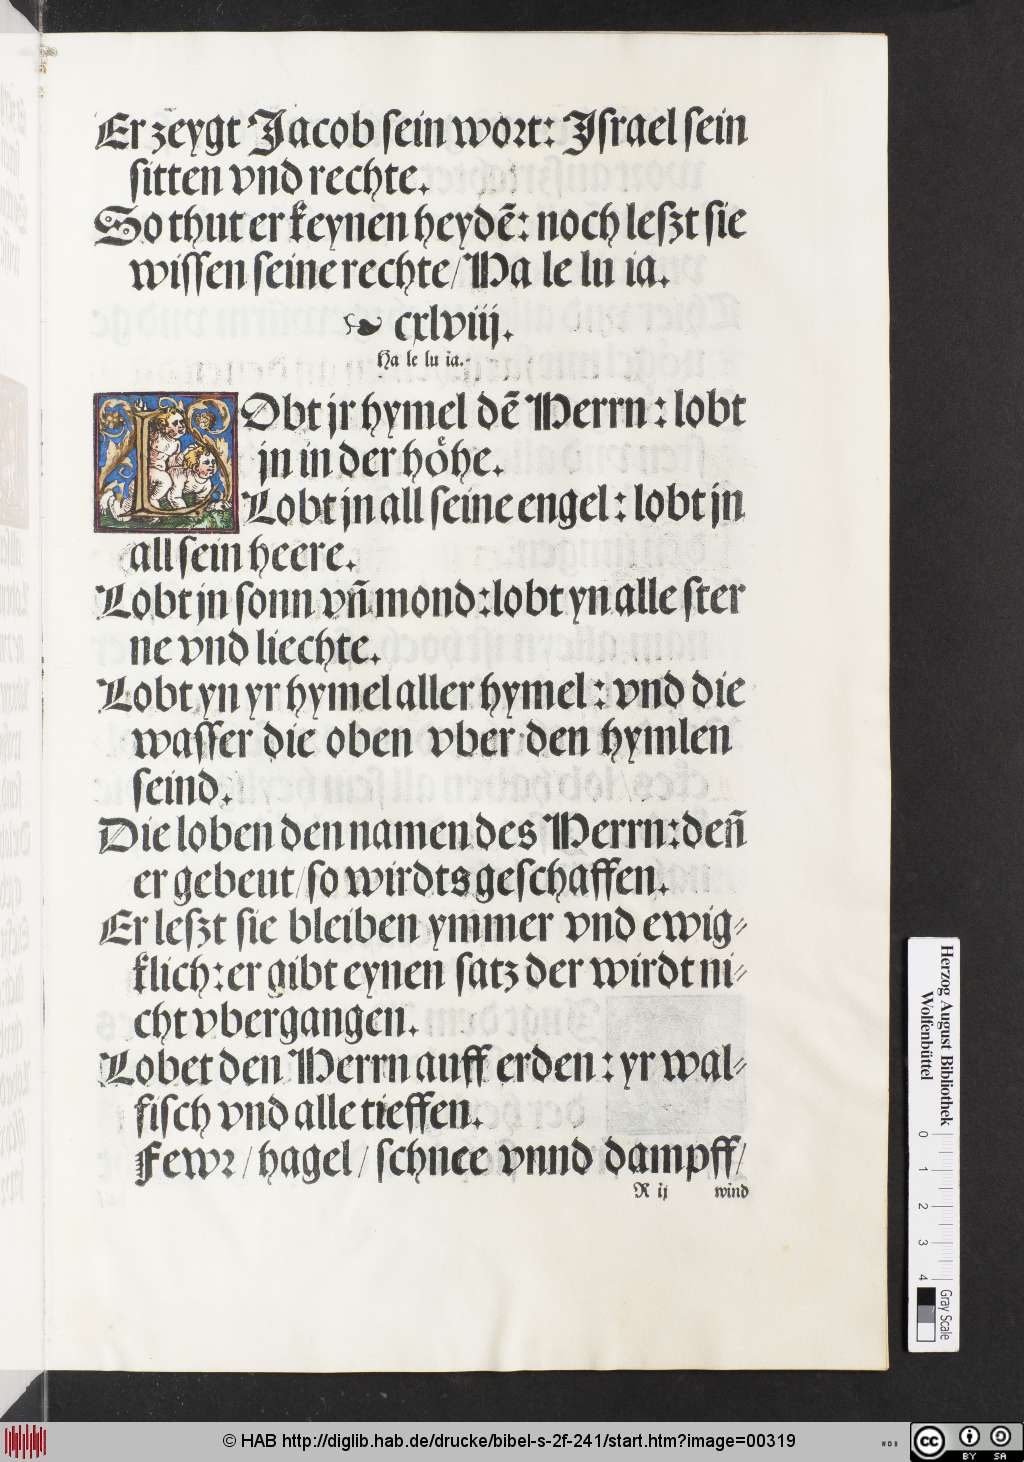 Er zeygt Jacob sein wort: Jsrael sein
sitten vnd rechte.
So thut er keynen heydē: noch leszt sie
wissen seine rechte/ Ha le lu ia.
☙ cxlviij.
Ha le lu ia.
LObt jr hymel dē Herrn: lobt
jn in der hoͤhe.
Lobt jn all seine engel: lobt jn
all sein heere.
Lobt jn sonn vñ mond: lobt yn alle ster
ne vnd liechte.
Lobt yn yr hymel aller hymel: vnd die
wasser die oben vber den hymlen
seind.
Die loben den namen des Herrn: deñ
er gebeut/ so wirdts geschaffen.
Er leszt sie bleiben ymmer vnd ewig⸗
klich: er gibt eynen satz der wirdt ni⸗
cht vbergangen.
Lobet den Herrn auff erden: yr wal⸗
fisch vnd alle tieffen.
Fewr/ hagel/ schnee vnnd dampff/
R ij wind
Herzog August Bibliothek
Wolfenbüttel
0 1 2 3 4
Gray Scale
© HAB http://diglib.hab.de/drucke/bibel-s-2f-241/start.htm?image=00319
WDB
cc BY SA